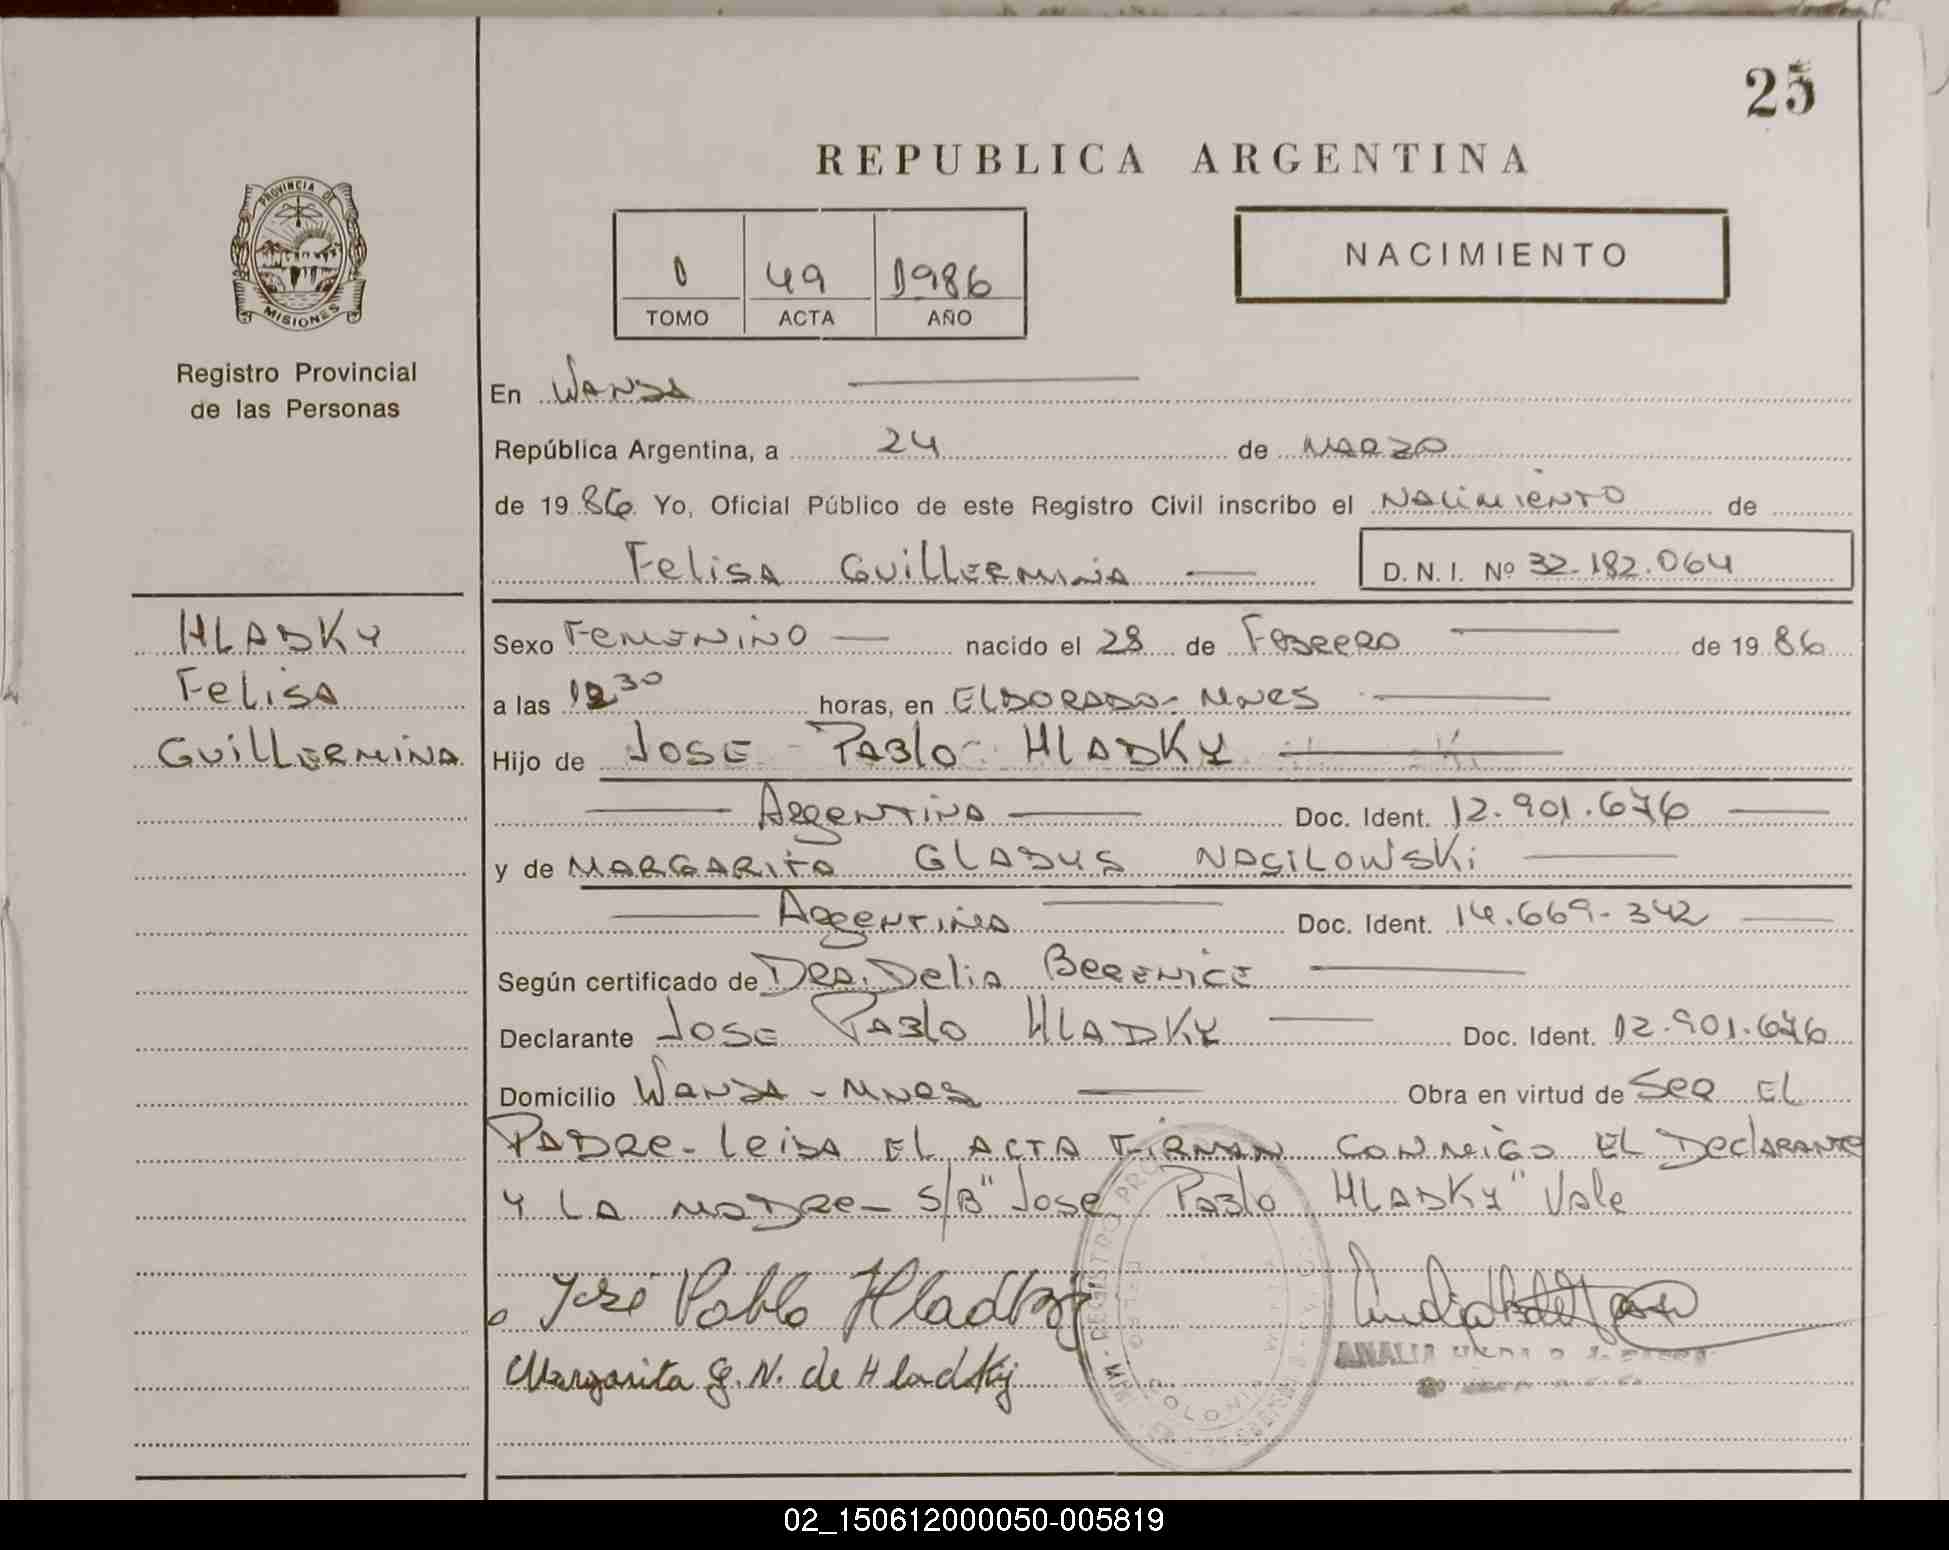 25
REPUBLICA ARGENTINA
PROVINCIA DE
MISIONES
Registro Provincial
de las Personas
HLADKY
Felisa
Guillermina
1 49 1986
TOMO ACTA AÑO
NACIMIENTO
En Wanda
República Argentina, a 24 de Marzo
de 1986 Yo, Oficial Público de este Registro Civil inscribo el Nacimiento de
Felisa Guillermina — D. N. I. Nº 32.182.064
Sexo Femenino — nacido el 28 de Febrero — de 1986
a las 12 30 horas, en Eldorado - Mnes —
Hijo de Jose Pablo HLADKY —
— Argentina — Doc. Ident. 12.901.676 —
y de Margarita Gladys Nasilowski —
— Argentina — Doc. Ident. 14.669.342 —
Según certificado de Dra. Delia Berenice —
Declarante Jose Pablo HLADKY — Doc. Ident. 12.901.676
Domicilio Wanda - Mnes — Obra en virtud de Ser el
Padre - leida el acta firman conmigo el Declarante
y la madre - S/B "Jose Pablo HLADKY" Vale
José Pablo Hladky
Margarita G. N. de Hladky
REGISTRO PRO
COLONIA
ANALIA
02_150612000050-005819